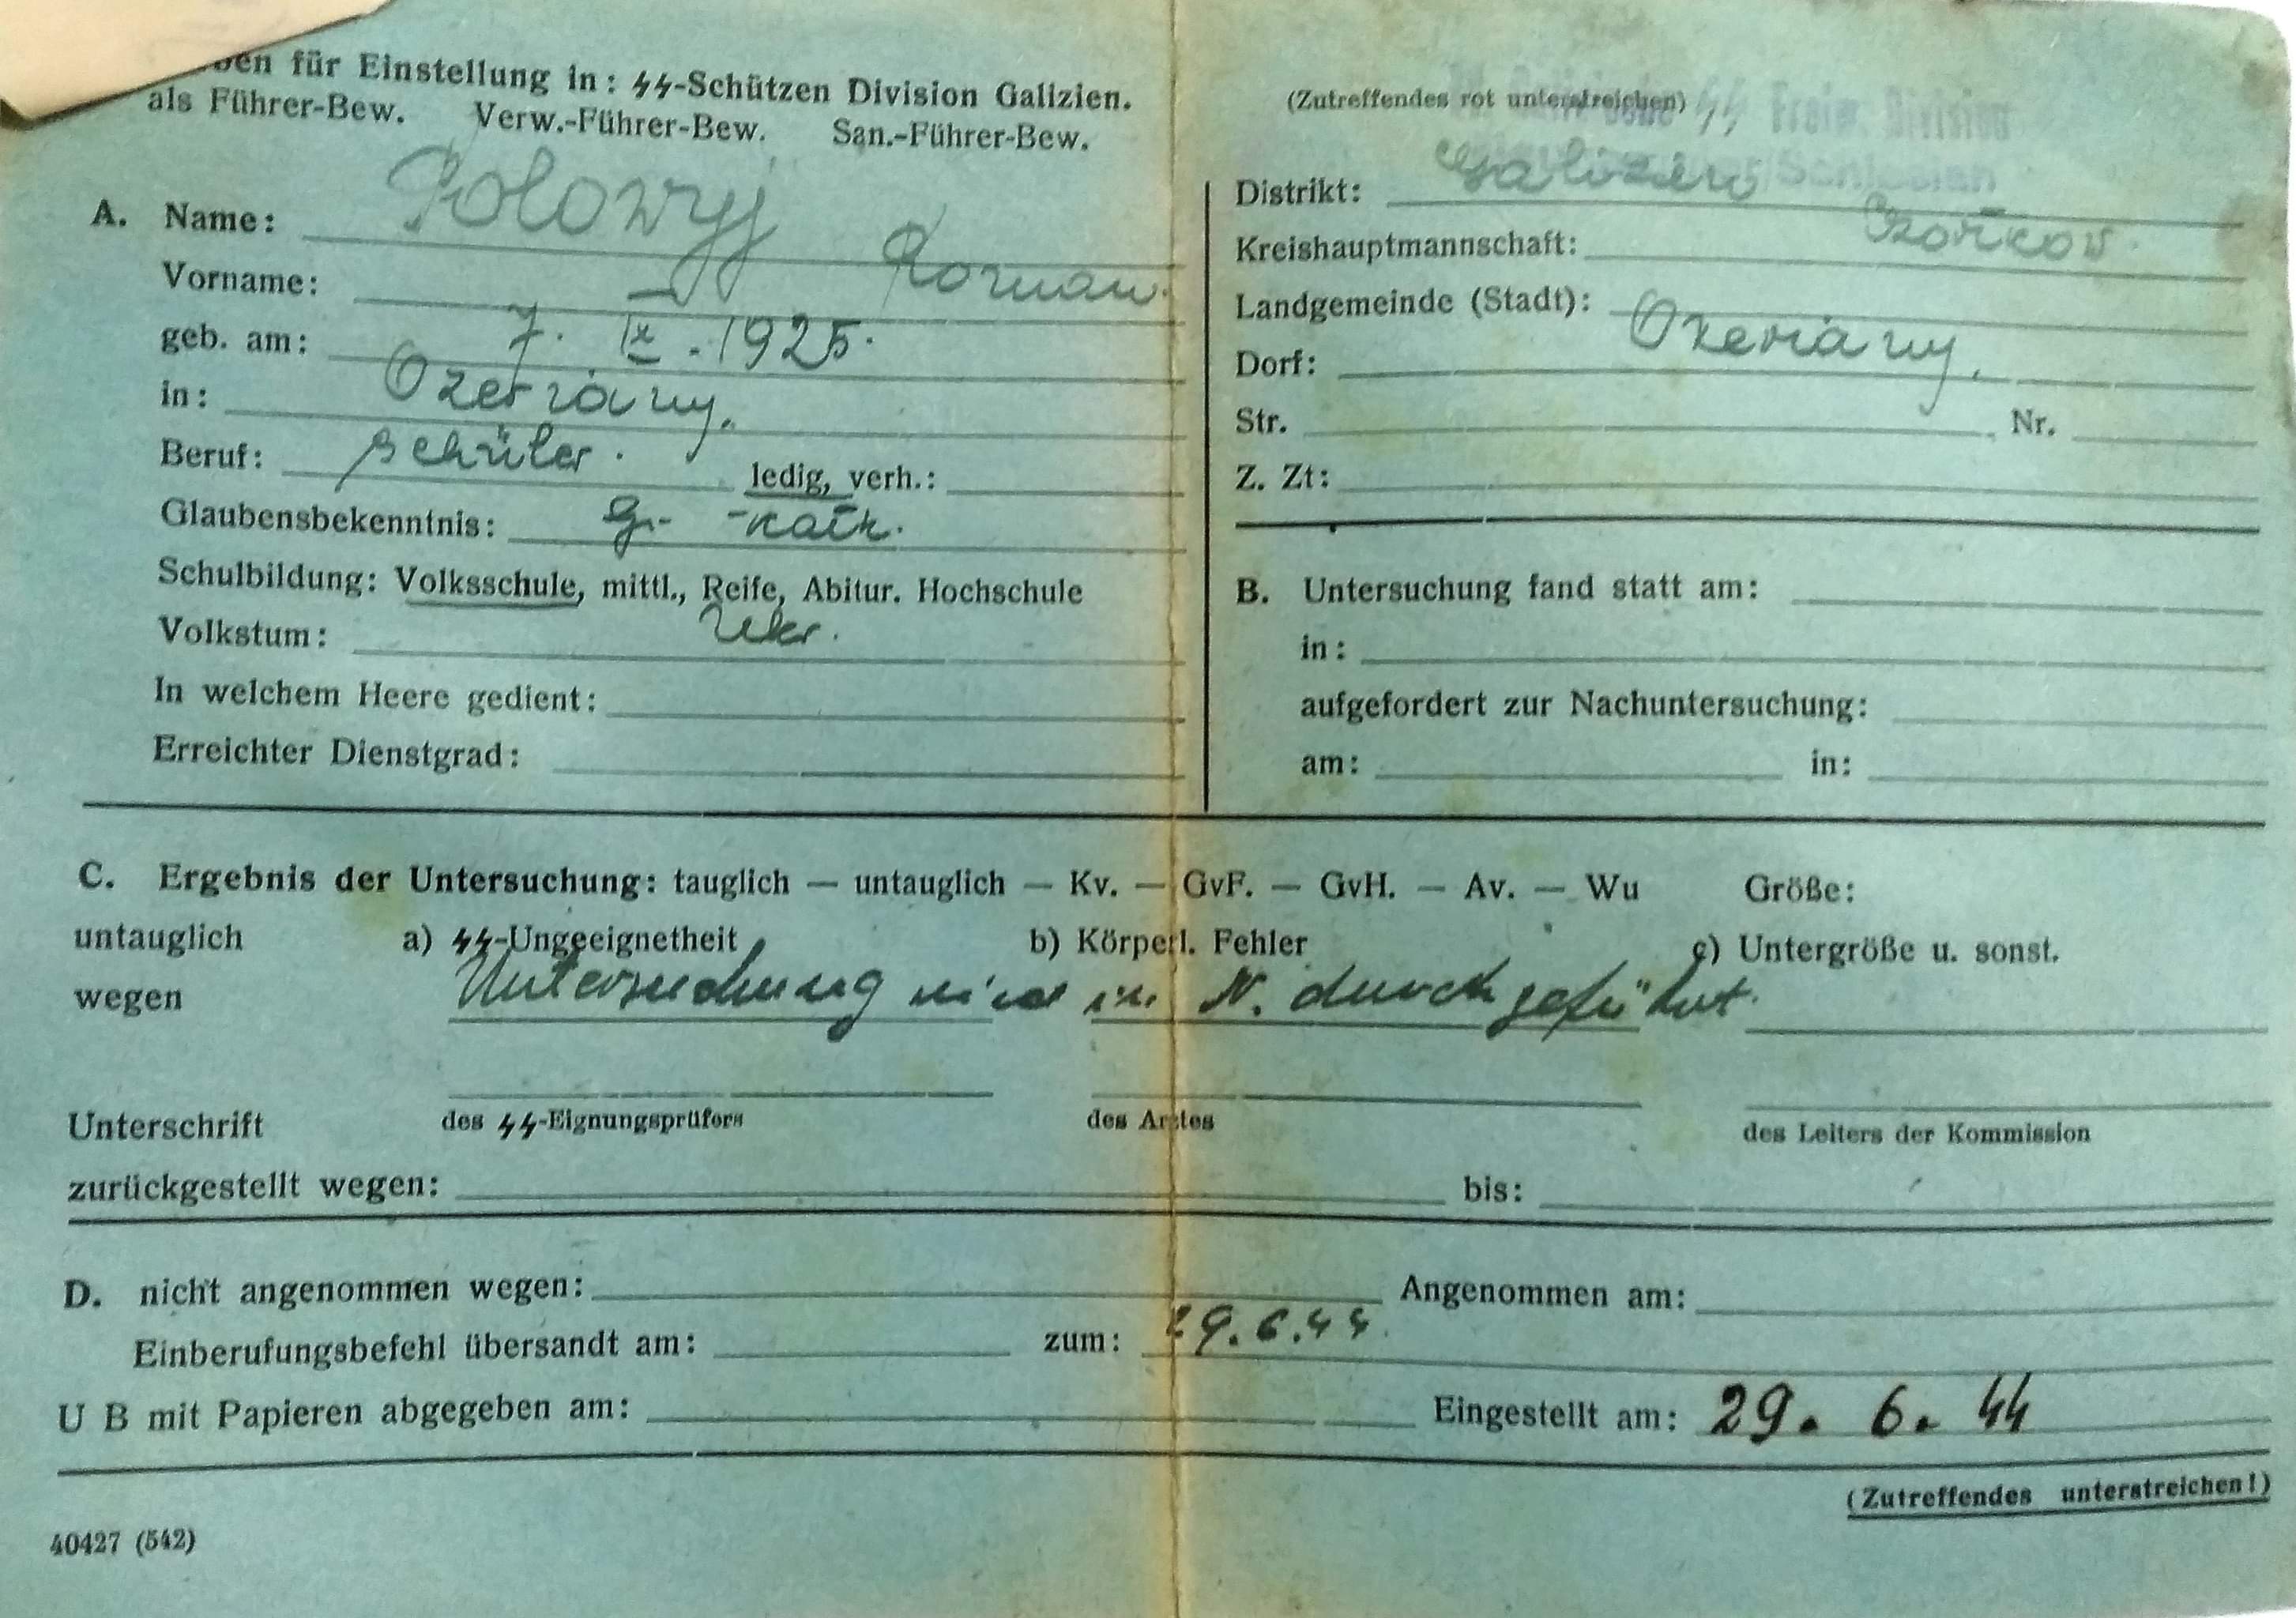 ben für Einstellung in: SS-Schützen Division Galizien.
als Führer-Bew. Verw.-Führer-Bew. San.-Führer-Bew.
A. Name: Polowyj
Vorname: Roman.
geb. am: 7. IX. 1925.
in: Ozeriany.
Beruf: Schüler. ledig, verh.:
Glaubensbekenntnis: gr-kath.
Schulbildung: Volksschule, mittl., Reife, Abitur. Hochschule
Volkstum: Ukr.
In welchem Heere gedient:
Erreichter Dienstgrad:
(Zutreffendes rot unterstreichen)
SS Freiw. Division
Distrikt: Galizien
Kreishauptmannschaft: Czortkow.
Landgemeinde (Stadt):
Dorf: Ozeriany.
Str. Nr.
Z. Zt:
B. Untersuchung fand statt am:
in:
aufgefordert zur Nachuntersuchung:
am: in:
C. Ergebnis der Untersuchung: tauglich — untauglich — Kv. — GvF. — GvH. — Av. — Wu Größe:
untauglich a) SS-Ungeeignetheit b) Körperl. Fehler c) Untergröße u. sonst.
wegen Untersuchung wird in N. durchgeführt.
Unterschrift des SS-Eignungsprüfers des Arztes des Leiters der Kommission
zurückgestellt wegen: bis:
D. nicht angenommen wegen: Angenommen am:
Einberufungsbefehl übersandt am: zum: 29.6.44.
U B mit Papieren abgegeben am: Eingestellt am: 29. 6. 44
(Zutreffendes unterstreichen!)
40427 (542)